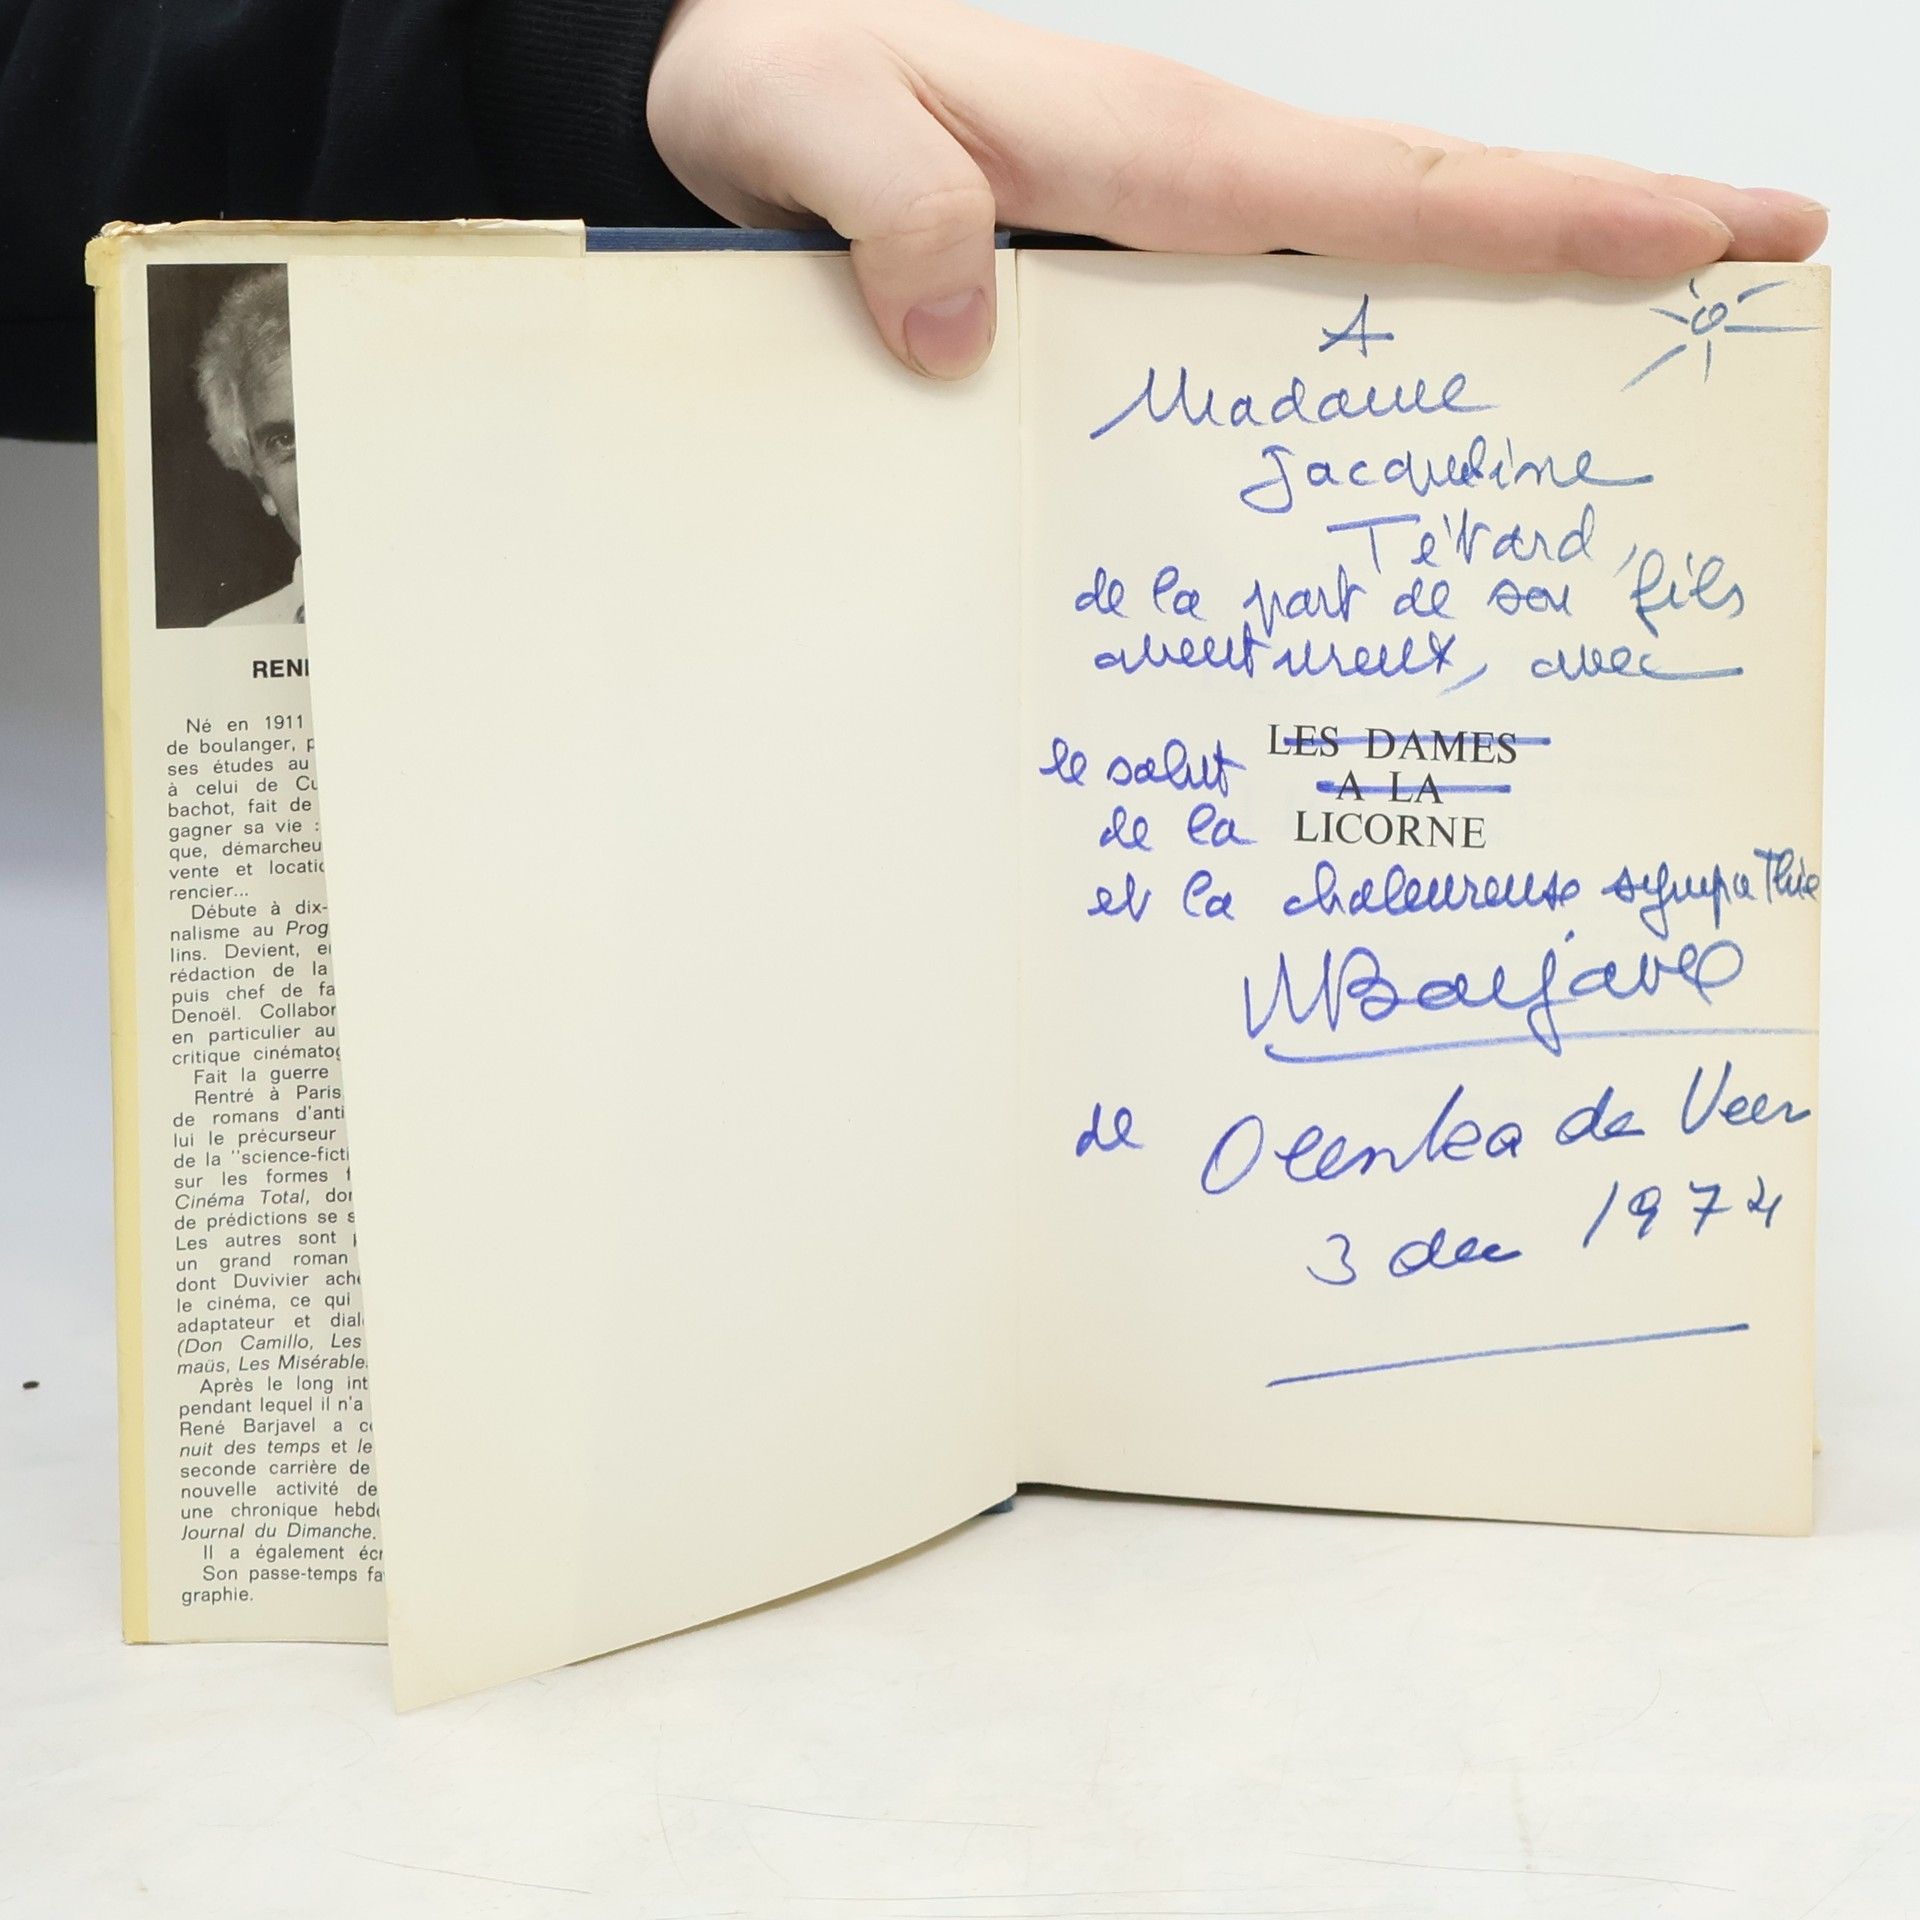 RENÉ
Né en 1911
de boulanger, p
ses études au
à celui de Cu
bachot, fait de
gagner sa vie :
que, démarcheu
vente et locatio
rencier...
Débute à dix-
nalisme au Prog
lins. Devient, e
rédaction de la
puis chef de fa
Denoël. Collabor
en particulier au
critique cinématog
Fait la guerre
Rentré à Paris
de romans d'anti
lui le précurseur
de la "science-ficti
sur les formes f
Cinéma Total, don
de prédictions se s
Les autres sont p
un grand roman
dont Duvivier ache
le cinéma, ce qui
adaptateur et dial
(Don Camillo, Les
maüs, Les Misérable
Après le long int
pendant lequel il n'a
René Barjavel a co
nuit des temps et le
seconde carrière de
nouvelle activité de
une chronique hebdo
Journal du Dimanche.
Il a également écr
Son passe-temps fa
graphie.
A
Madame
Jacqueline
Tévard,
de la part de son fils
aventureux, avec
LES DAMES
le salut
A LA
de la LICORNE
et la chaleureuse sympathie
Barjavel
de Olenka de Veer
3 dec 1974